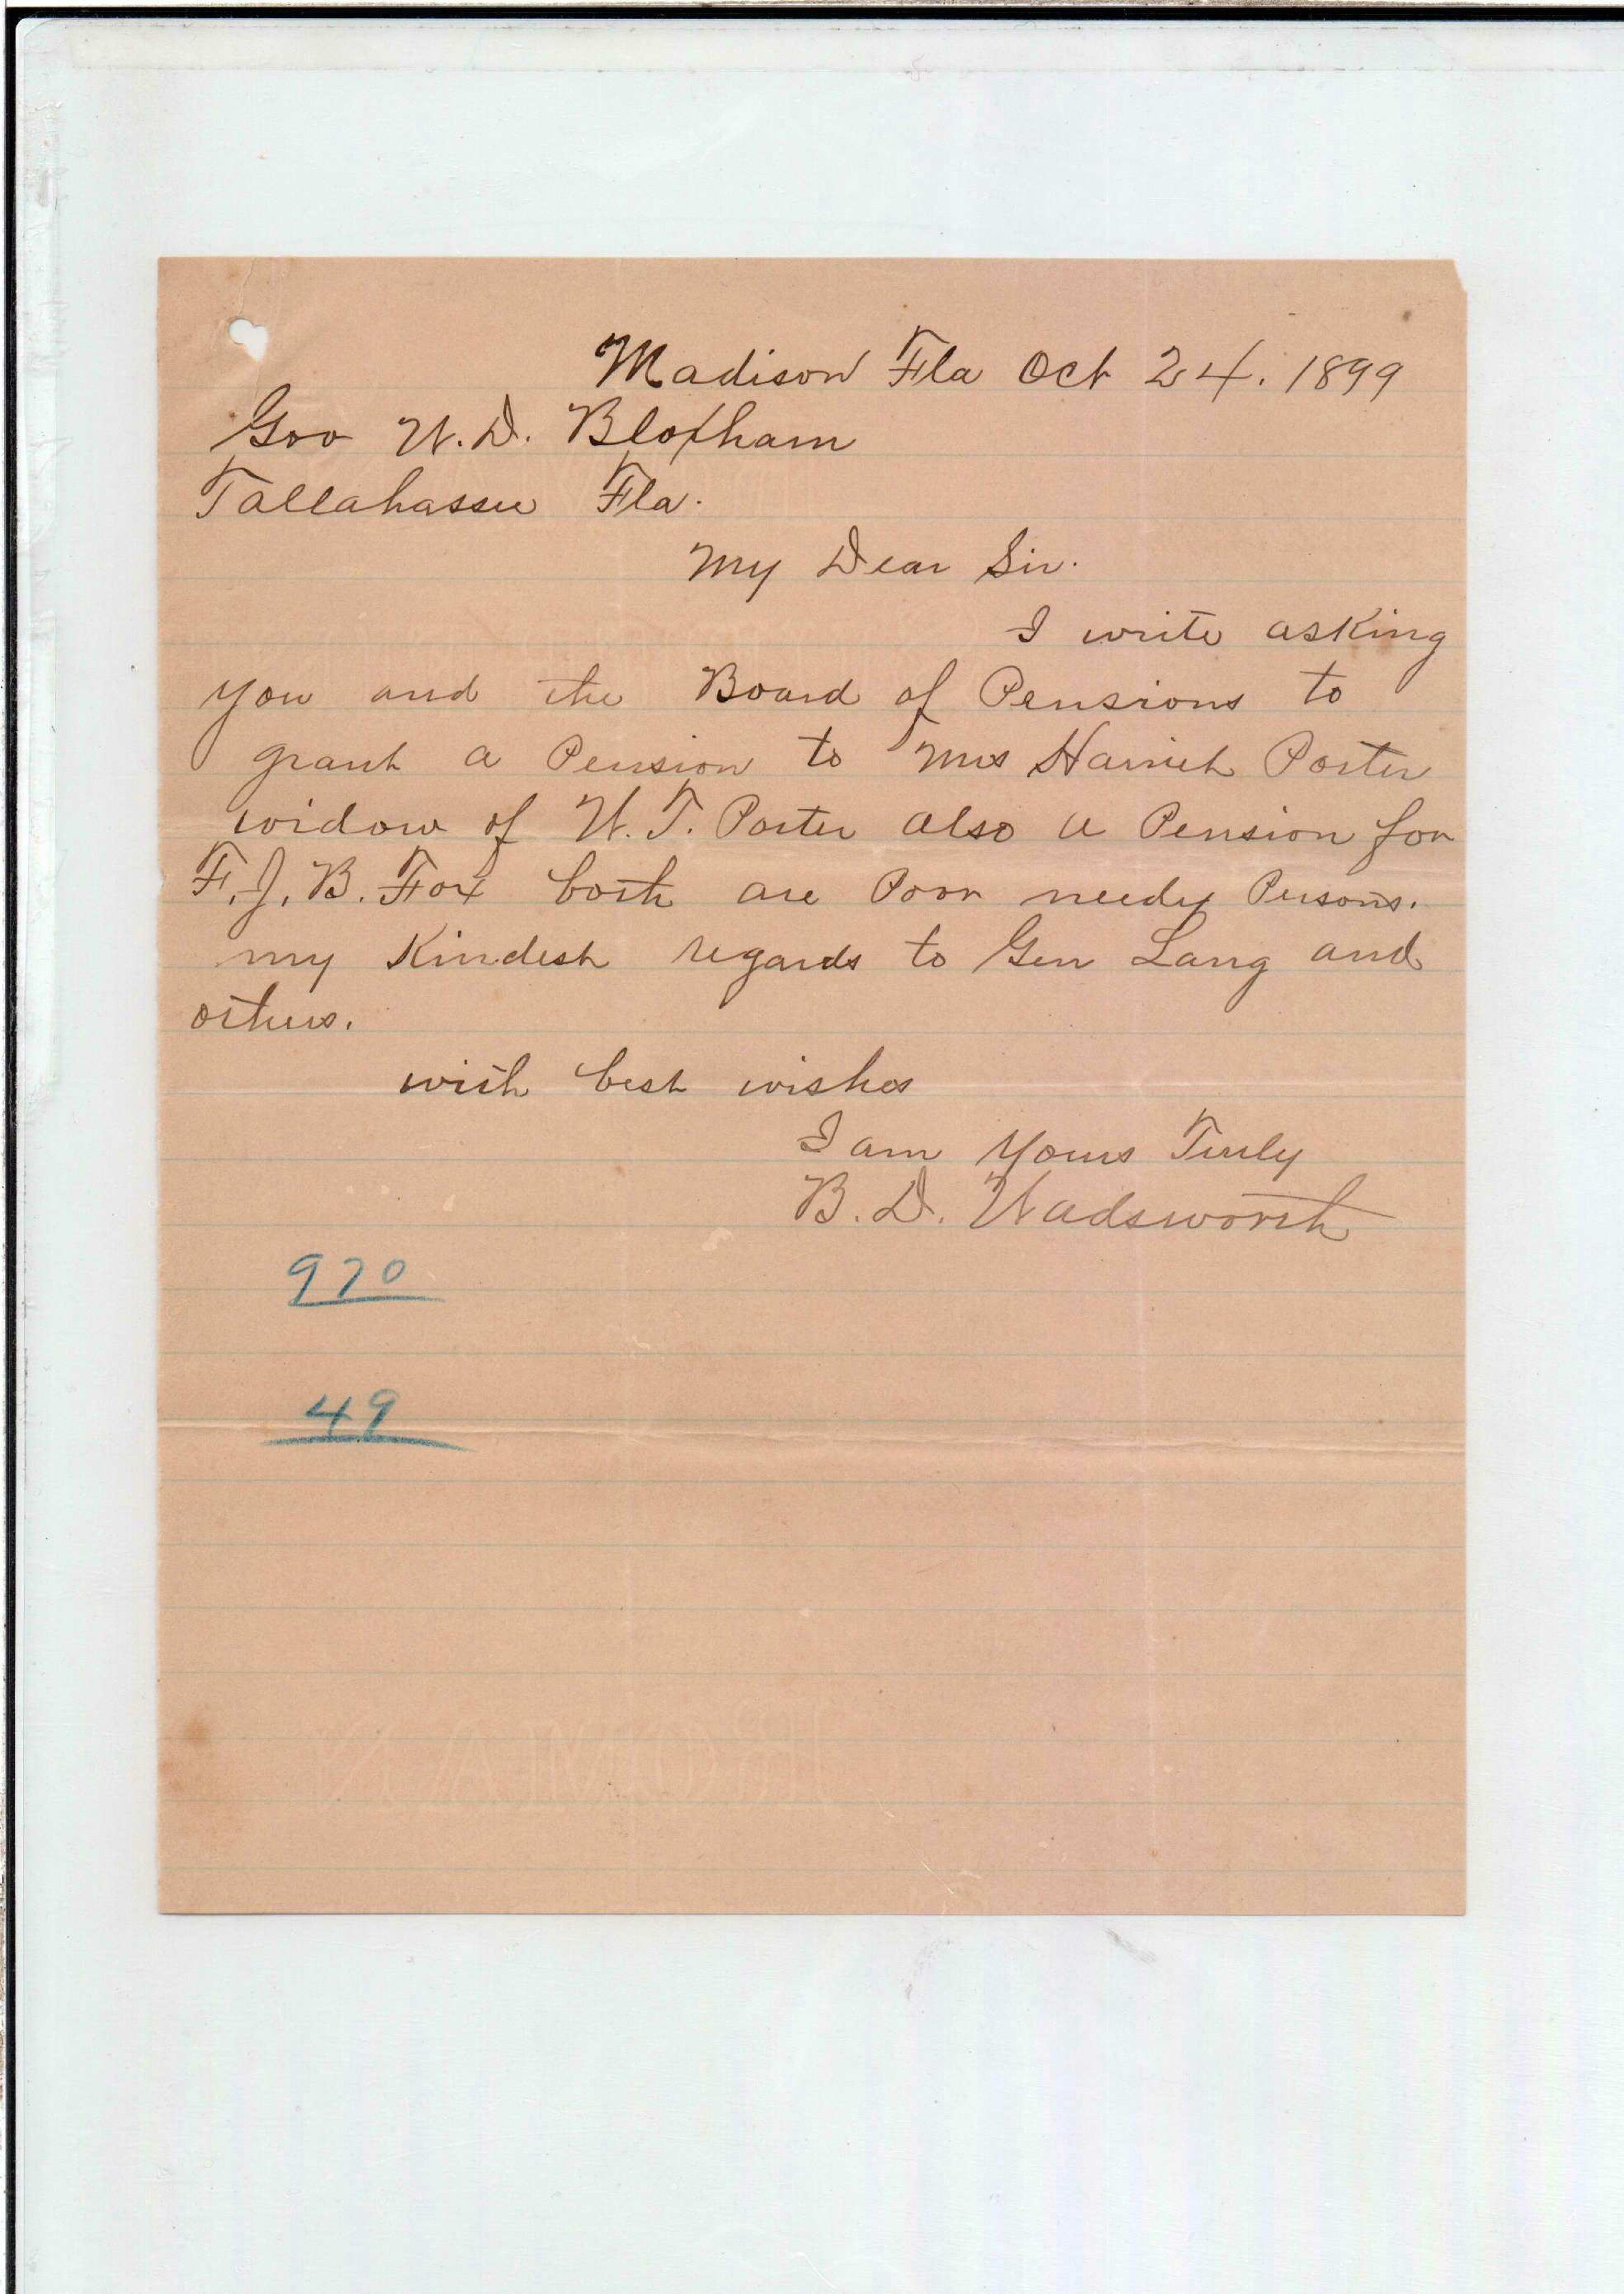 Madison Fla Oct 24. 1899
Gov W. D. Bloxham
Tallahassee Fla.
My Dear Sir.
I write asking
you and the Board of Pensions to
grant a Pension to Mrs Harriet Porter
widow of W. T. Porter also a Pension for
F. J. B. Fox both are Poor needy Persons.
my Kindest regards to Gen Lang and
others.
with best wishes
I am Yours Truly
B. D. Wadsworth
970
49